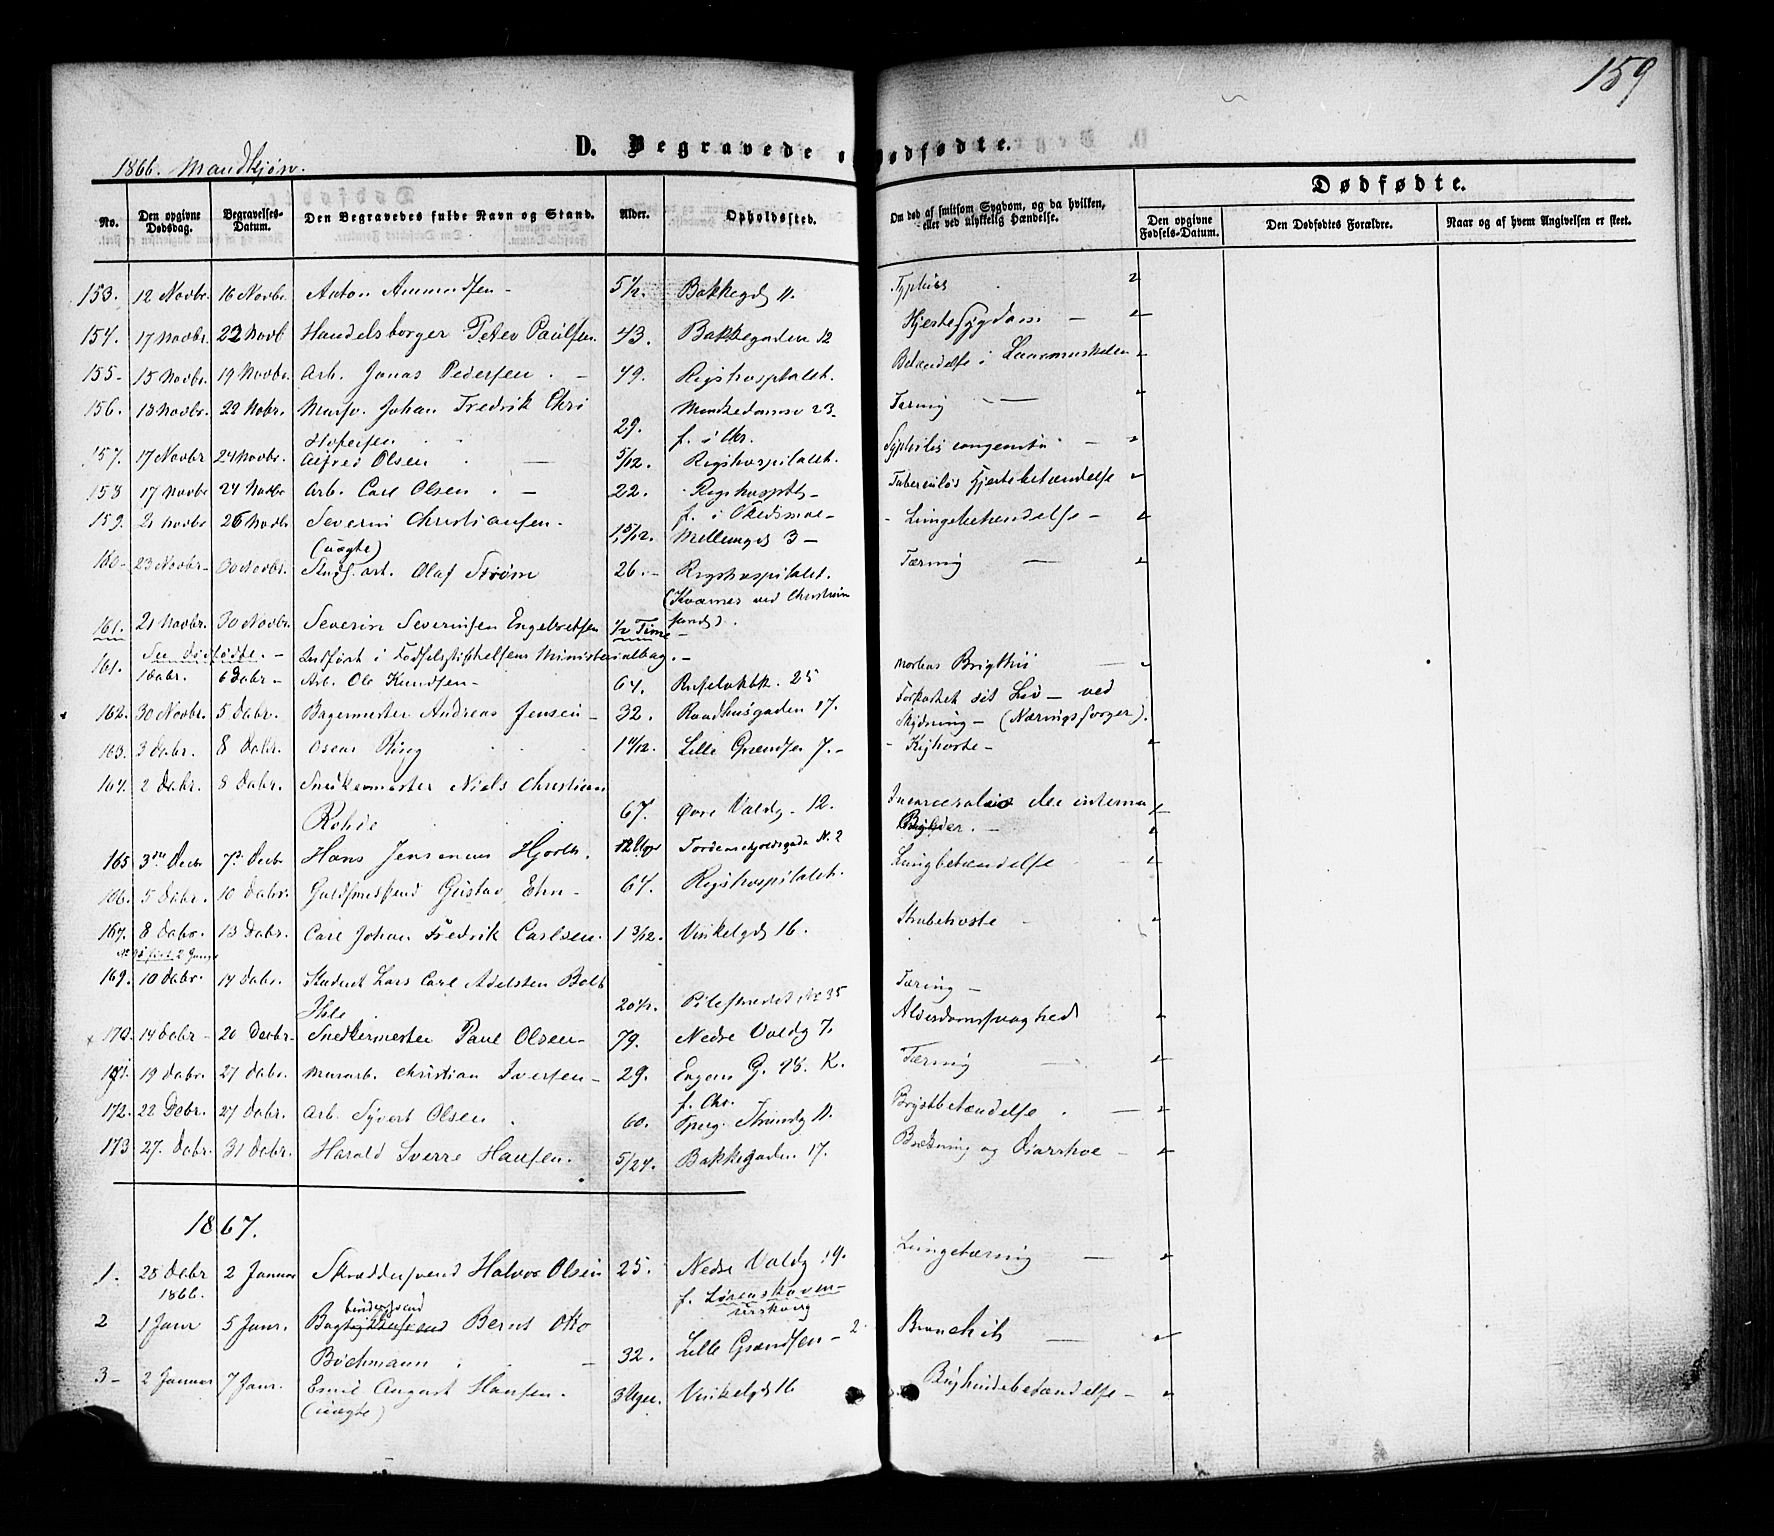 159
D. Begravede o Dødfødte.
1866. Mandkjøn.
No. Den opgivne Dødsdag. Begravelses-Datum. Den Begravedes fulde Navn og Stand. Alder. Opholdssted. Om død af smitsom Sygdom, og da hvilken, eller ved ulykkelig Hændelse.
Dødfødte.
Den opgivne Fødsels-Datum. Den Dødfødtes Forældre. Naar og af hvem Angivelsen er skeet.
153. 12 Novbr. 16 Novbr. Anton Amundsen - Bakkegd 11. Typhus
154. 17 Novbr. 22 Novb Handelsborger Peter Paulsen. 43. Bakkegaden 12 Hjertesygdom -
155 - 15 Novbr. 19 Novbr. Arb. Jonas Pedersen. - 49. Rigshospitalet. Betændelse i Laarmuskelen
156. 18 Novbr. 22 Nobr. Mursv. Johan Fredrik Chri
stofersen 29. Munkedamsv 23 - f. i Chr. Tæring -
157. 17 Novbr 24 Novbr. Alfred Olsen - 5/12. Rigshospitalet. Syphilis congenita -
158 17 Novbr 24 Novbr Arb. Carl Olsen. - 22. Rigshosptl - Tuberculøs Hjertebetændelse
f. i Skedsmoe -
159. 21 Novbr 26 Novbr Severin Christiansen - 1 5/12. Mellemgd 3 - Lungebetændelse -
(uægte)
160 - 23 Novbr - 30 Novbr. arb. Olaf Strøm 26. - Rigshospitalet. Tæring -
(Kværnes ved Christian
sund).
161. 21 Novbr. 30 Novbr. Severin Severinsen Engebretsen 1/2 Time -
See dødfødte. - Indført i Fødselsstiftelsens Ministerialbog. -
161. 1 Dcbr. 6 Dcbr - Arb. Ole Knudsen - 64. 25 Morbus Brigthii -
162. 30 Novbr. 5 Dcbr. Bagermester Andreas Jensen - 32. Raadhusgaden 17. Forkortet sit Liv - ved
Skydning - (Næringssorger).
163. 3 Dcbr. 8 Dcbr. Oscar Lille Grændsen 7. - Kighoste -
164. 2 Dcbr. 8 Dcbr. Snedkermester Niels Christian
Rohde 67. Øvre Voldg - 12. Incarceratio der interna
165 3die Decbr 7de Decbr Hans Jensenius Hjorth. 12 Uger Tordenskjoldsgade N. 2
166. 5 Dcbr. 10 Dcbr. Guldsmedsvend Gustav Ehn - 64. Rigshospitalet. Lungbetændelse
167. 8 Dcbr. 13 Dcbr. Carl Johan Fredrik Carlsen. 1 3/12. Vinkelgd 16. Strubehoste -
169. 10 Dcbr. 14 Dcbr. Student Lars Carl Adelsten Bolt
Ihle. Pilestrædet No 35 Tæring -
170. 14 Dcbr - 20 Decbr - Snedkermester Paul Olsen - 79. Nedre Voldg 7. Alderdomssvaghed
171. 19 Dcbr. 27 Dcbr. Murarb. Christian Iversen - 29. Engens G. 98. K. Tæring -
f. Chr.
172. 22 Dcbr. 27 Dcbr. Arb. Syvert Olsen. 60. 11. Brystbetændelse. -
173 27. Dcbr. 31 Dcbr. Harald Sverre Hansen. 5/24. Bakkegaden 17. Brækning og Diarrhoe -
1867.
1. 28 Dcbr 1866. 2 Januar Skræddersvend Halvor Olsen 25. Nedre Voldg 19. Lungetæring -
f.
2 1 Janr 5 Janr. Bogbindersvend Bernt Otto
Bochmann. - 32. Lille Grændsen - 2 Bronchit -
3 - 2 Januar 7 Janr. Emil August Hansen. 3 Uger. Vinkelgd 16 Bughindebetændelse -
(uægte)